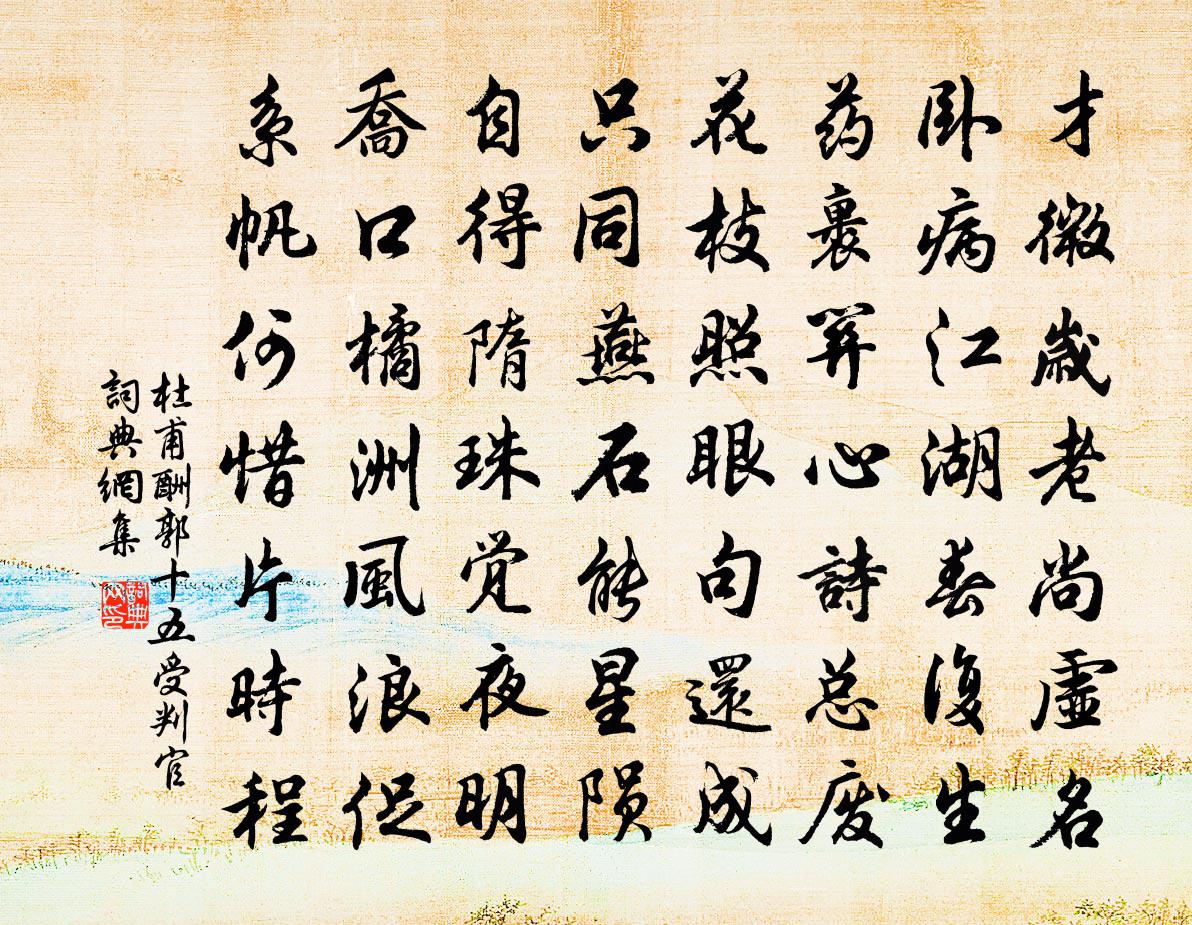 才微歲老尚虛名
卧病江湖春復生
药裹關心詩总废
花枝照眼句還成
只同燕石能星陨
自得隋珠觉夜明
喬口橘洲風浪促
系帆何惜片時程
杜甫酬郭十五受判官
詞典網集
詞典